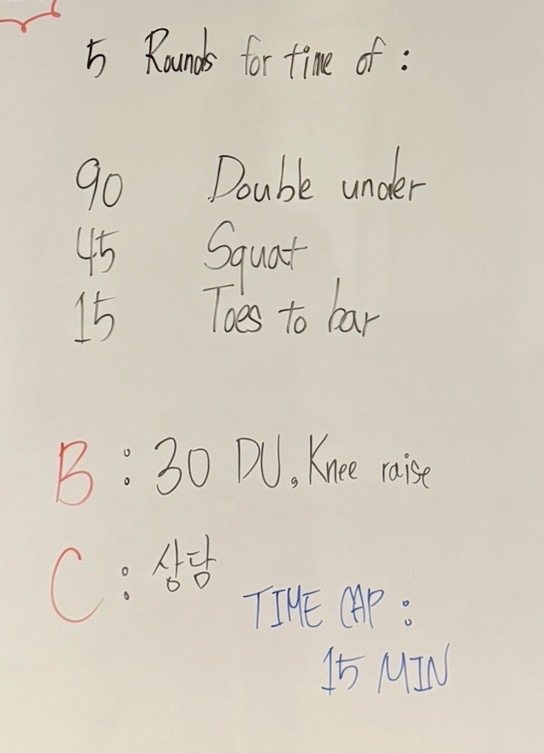 5 Rounds for time of :
90 Double under
45 Squat
15 Toes to bar
B : 30 DU, Knee raise
C : 상담
TIME CAP :
15 MIN